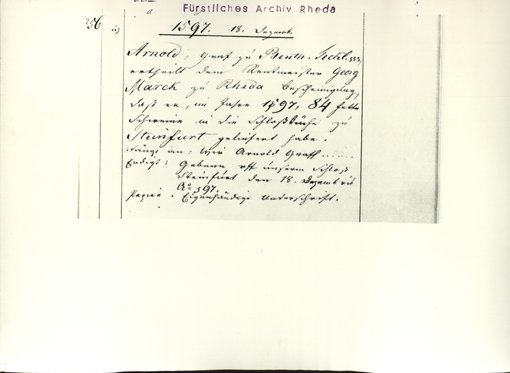 Fürstliches Archiv Rheda
256
1597. 18. Dezemb.
Arnold, Graf zu Benth. Teckl.
ertheilt dem Rentmeister Georg
Marck zu Rheda Bescheinigung,
daß er, im Jahre 1597, 84 fette
Schweine in die Schloßküche zu
Steinfurt geliefert habe.
Fängt an: Wir Arnold Graff
Endigt: Gebenn uff unserm Schloß
Steinfurt den 18. Dezembris
Aº 97.
Papier. Eigenhändige Unterschrift.